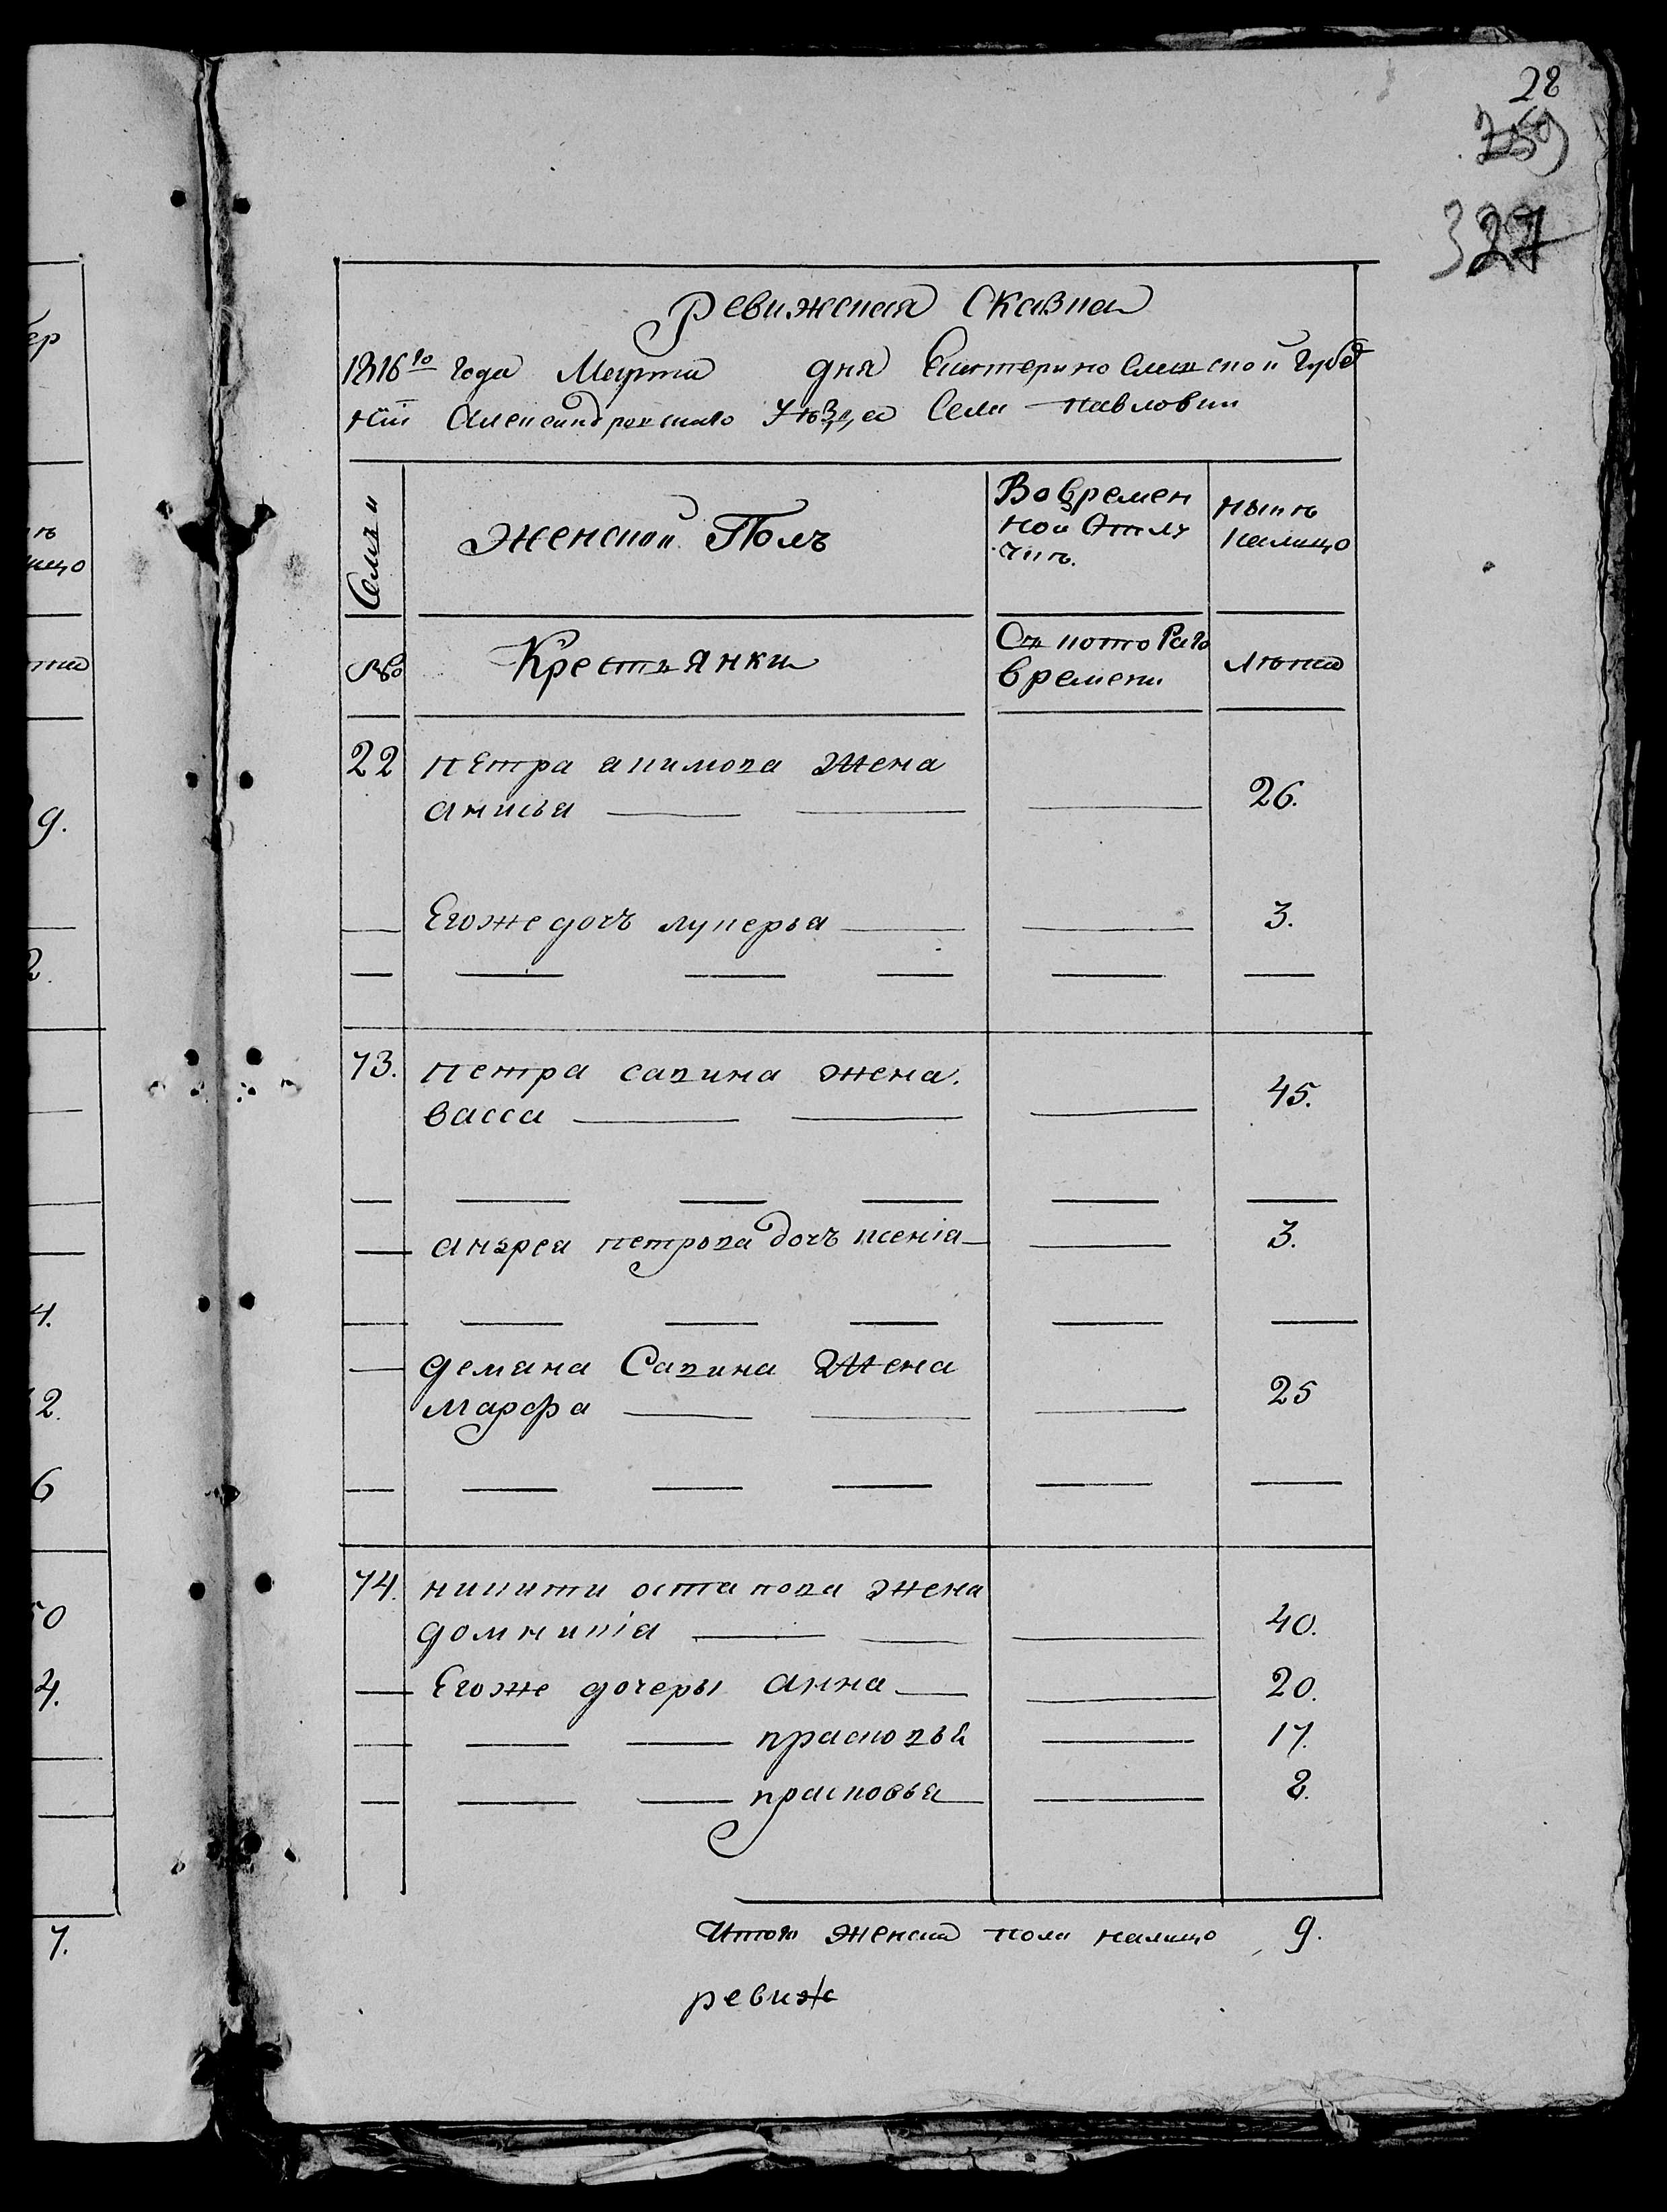 28
259
327
Ревижская сказка
1816го года Марта дня Екатеринославской губер
нiи Александровскаго уѣзда села Павловки
Семьи
Женской Полъ
Во времен
ной отлу
чкѣ.
нынѣ
налицо
№
Крестьянки
Съ котораго
времени
лѣта
22 петра акимова жена
анисья 26.
Егоже дочь лукерья 3.
73. петра савина жена.
васса 45.
андрея петрова дочъ ксенiа 3.
демяна Савина жена
марфа 25
74. никити остапова жена
домникiа 40.
Егоже дочеры анна 20.
прасковья 17.
прасковья 8.
Итого женска пола налицо 9.
ревиж
ер
нѣ
ицо
та
9.
2.
4.
2.
6
50
4.
7.